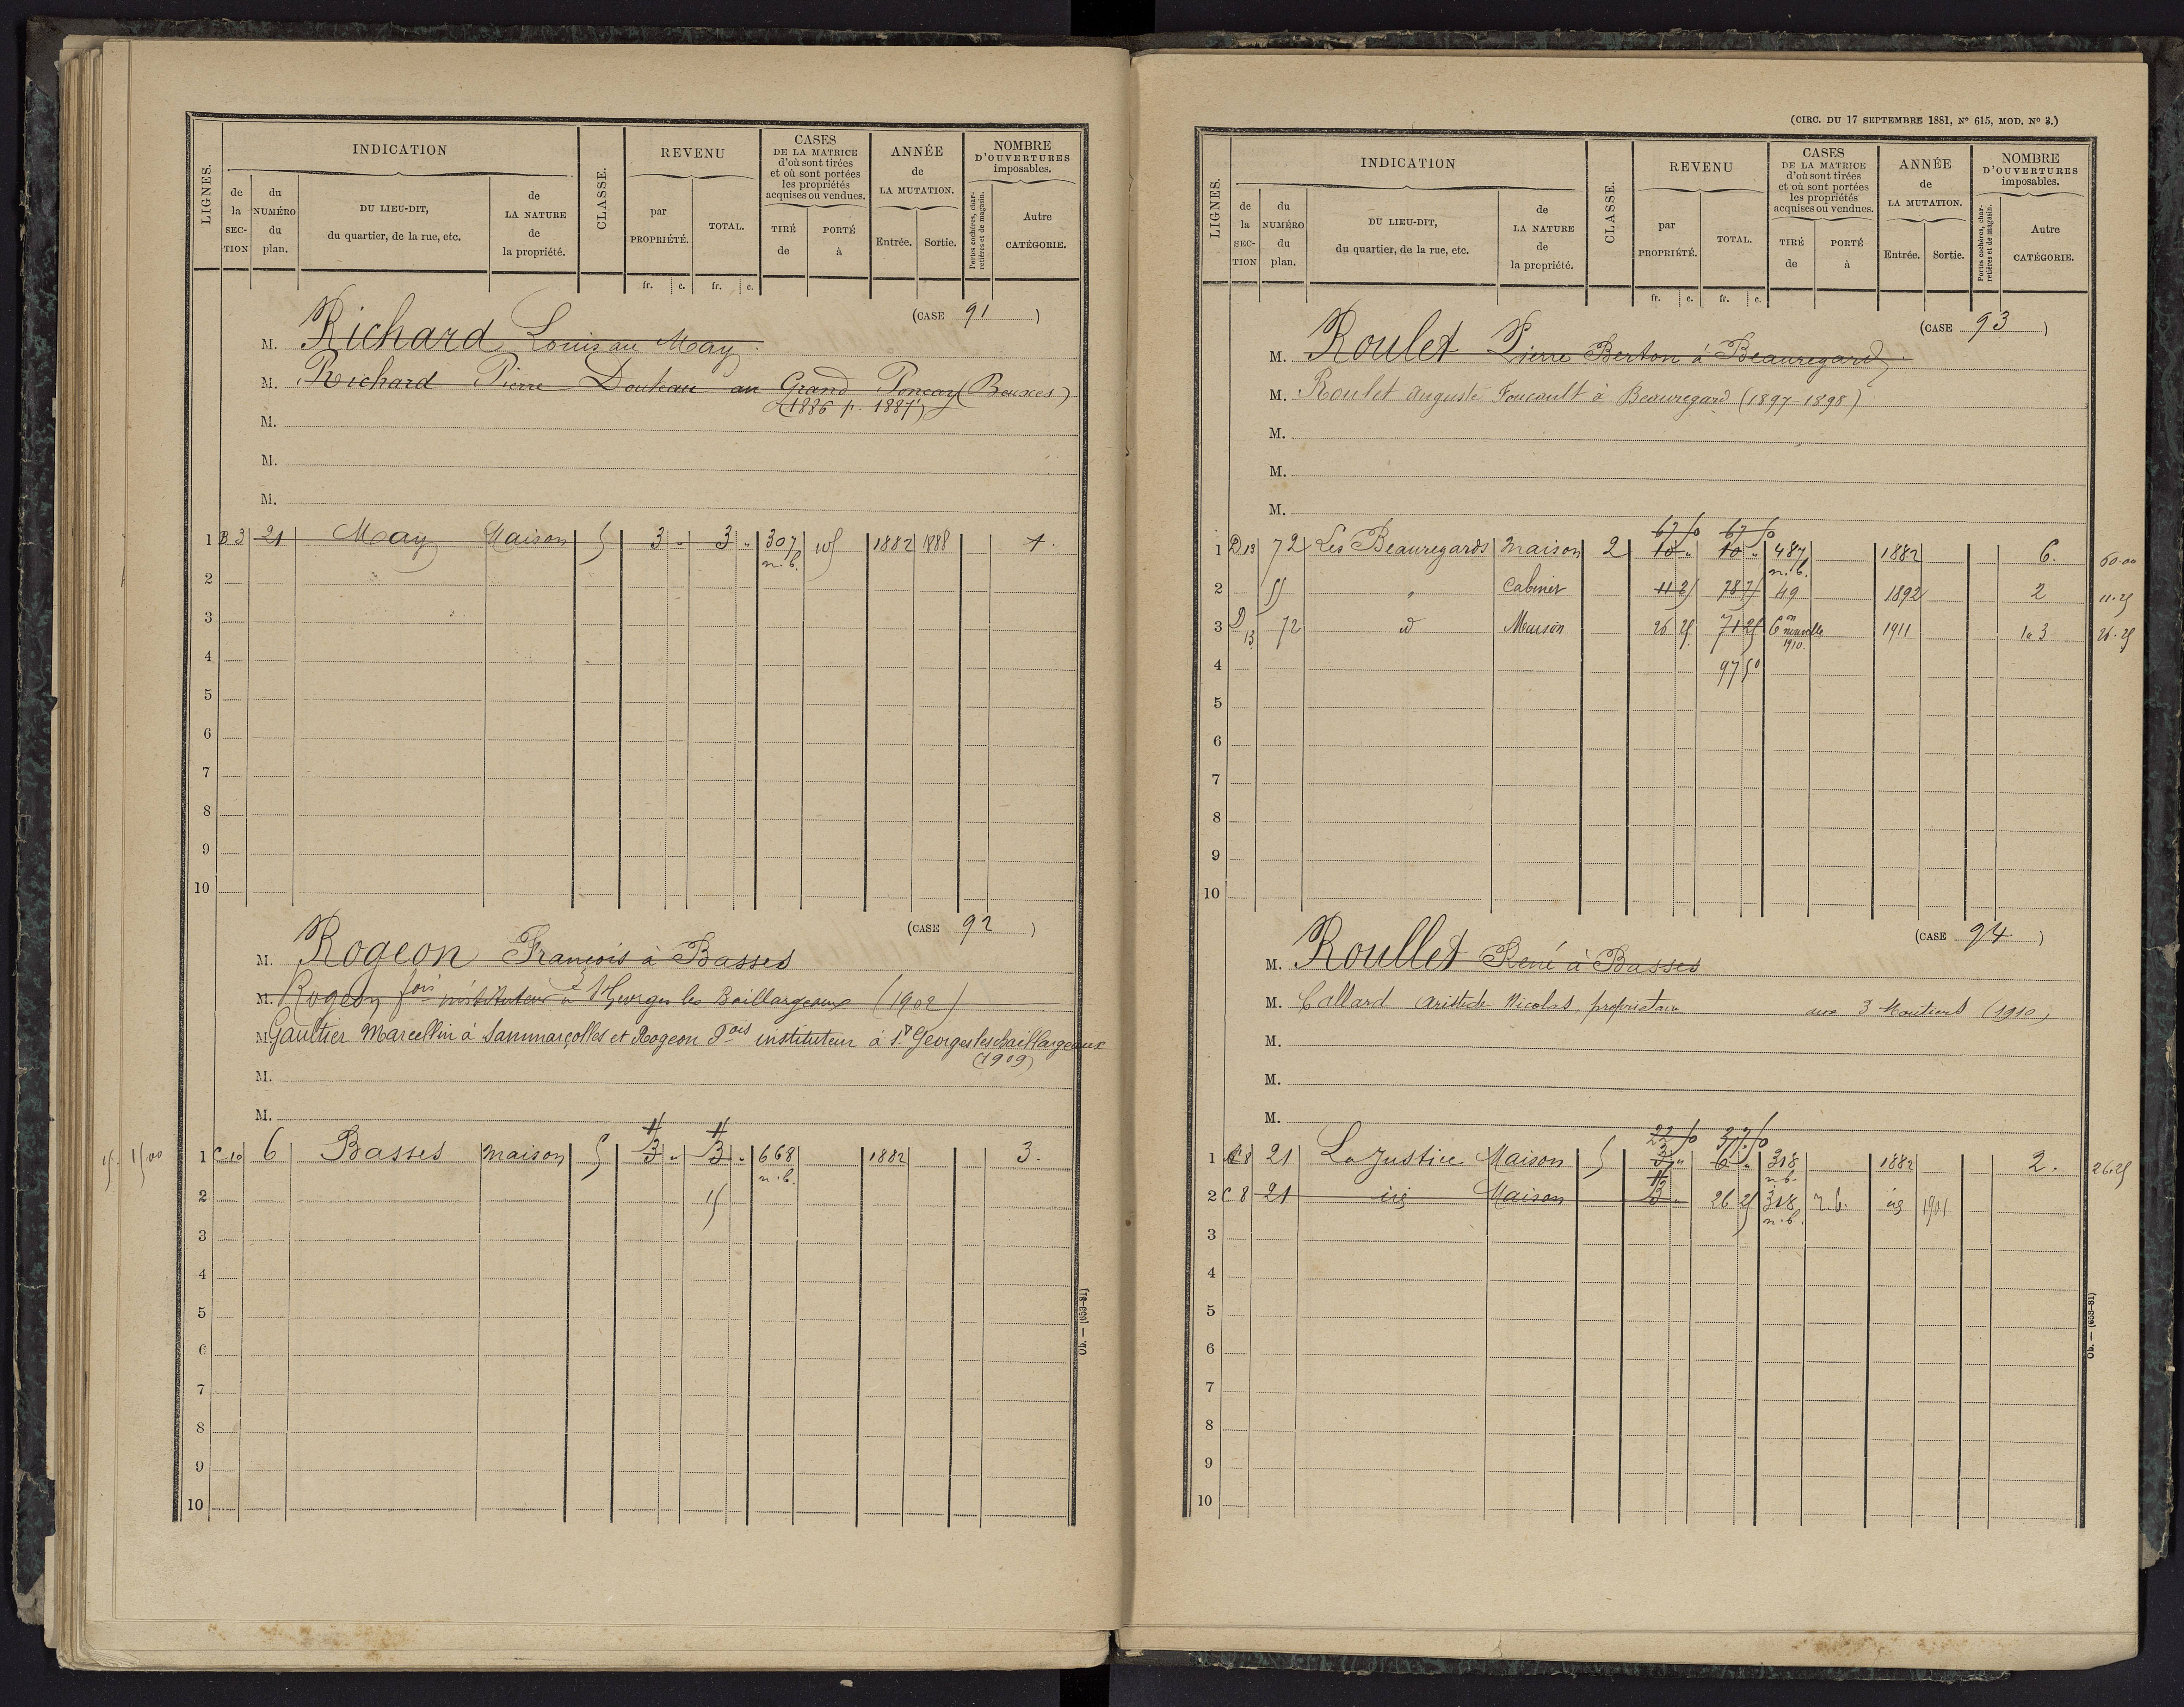 LIGNES.
INDICATION
de la SECTION
du NUMÉRO du plan.
DU LIEU-DIT, du quartier, de la rue, etc.
de LA NATURE de la propriété.
CLASSE.
REVENU
par PROPRIÉTÉ.
TOTAL.
CASES DE LA MATRICE d'où sont tirées et où sont portées les propriétés acquises ou vendues.
TIRÉ de
PORTÉ à
ANNÉE de LA MUTATION.
Entrée.
Sortie.
NOMBRE D'OUVERTURES imposables.
Portes cochères, charretières et de magasin.
Autre CATÉGORIE.
fr. c. fr. c.
(CASE 91)
M. Richard Louis au May
M. Richard Pierre Douteau au Grand Poncay (Beuxes)
(1886 p. 1887)
M.
M.
M.
1 B 3 21 May Maison 5 3 " 3 " 307 n.b. 105 1882 1888 1.
2
3
4
5
6
7
8
9
10
(CASE 92)
M. Rogeon François à Basses
M. Rogeon fois instituteur à St Georges les Baillargeaux (1902)
M. Gaultier Marcellin à Sammarçolles et Rogeon Fois instituteur à St Georges les baillargeaux
(1909)
M.
M.
15 00 1 C 10 6 Basses maison 5 3 " 3 " 668 n.b. 1882 3.
2 15
3
4
5
6
7
8
9
10
Ob. — (653-81)
(CIRC. DU 17 SEPTEMBRE 1881, N° 615, MOD. N° 3.)
LIGNES.
INDICATION
de la SECTION
du NUMÉRO du plan.
DU LIEU-DIT, du quartier, de la rue, etc.
de LA NATURE de la propriété.
CLASSE.
REVENU
par PROPRIÉTÉ.
TOTAL.
CASES DE LA MATRICE d'où sont tirées et où sont portées les propriétés acquises ou vendues.
TIRÉ de
PORTÉ à
ANNÉE de LA MUTATION.
Entrée.
Sortie.
NOMBRE D'OUVERTURES imposables.
Portes cochères, charretières et de magasin.
Autre CATÉGORIE.
fr. c. fr. c.
(CASE 93)
M. Roulet Pierre Berton à Beauregard
M. Roulet Auguste Foucault à Beauregard (1897-1898)
M.
M.
M.
67 50 67 50
1 D 13 72 Les Beauregards maison 2 10 " 10 " 487 n.b. 1882 6. 60.00
2 " Cabinet 11 25 78 75 49 1892 2 11.25
3 D 13 72 id Maison 26 25 71 25 Con nouvelle 1910. 1911 1 à 3 26.25
4 97 50
5
6
7
8
9
10
(CASE 94)
M. Roullet René à Basses
M. Callard Aristide Nicolas, propriétaire aux 3 Moutiers (1910)
M.
M.
M.
22 50 37 50
1 C 8 21 La Justice Maison 5 3 " 6 " 318 n.b. 1882 2. 26.25
2 C 8 21 id Maison 3 " 26 25 318 n.b. n.b. id 1901
3
4
5
6
7
8
9
10
Ob. — (653-81)